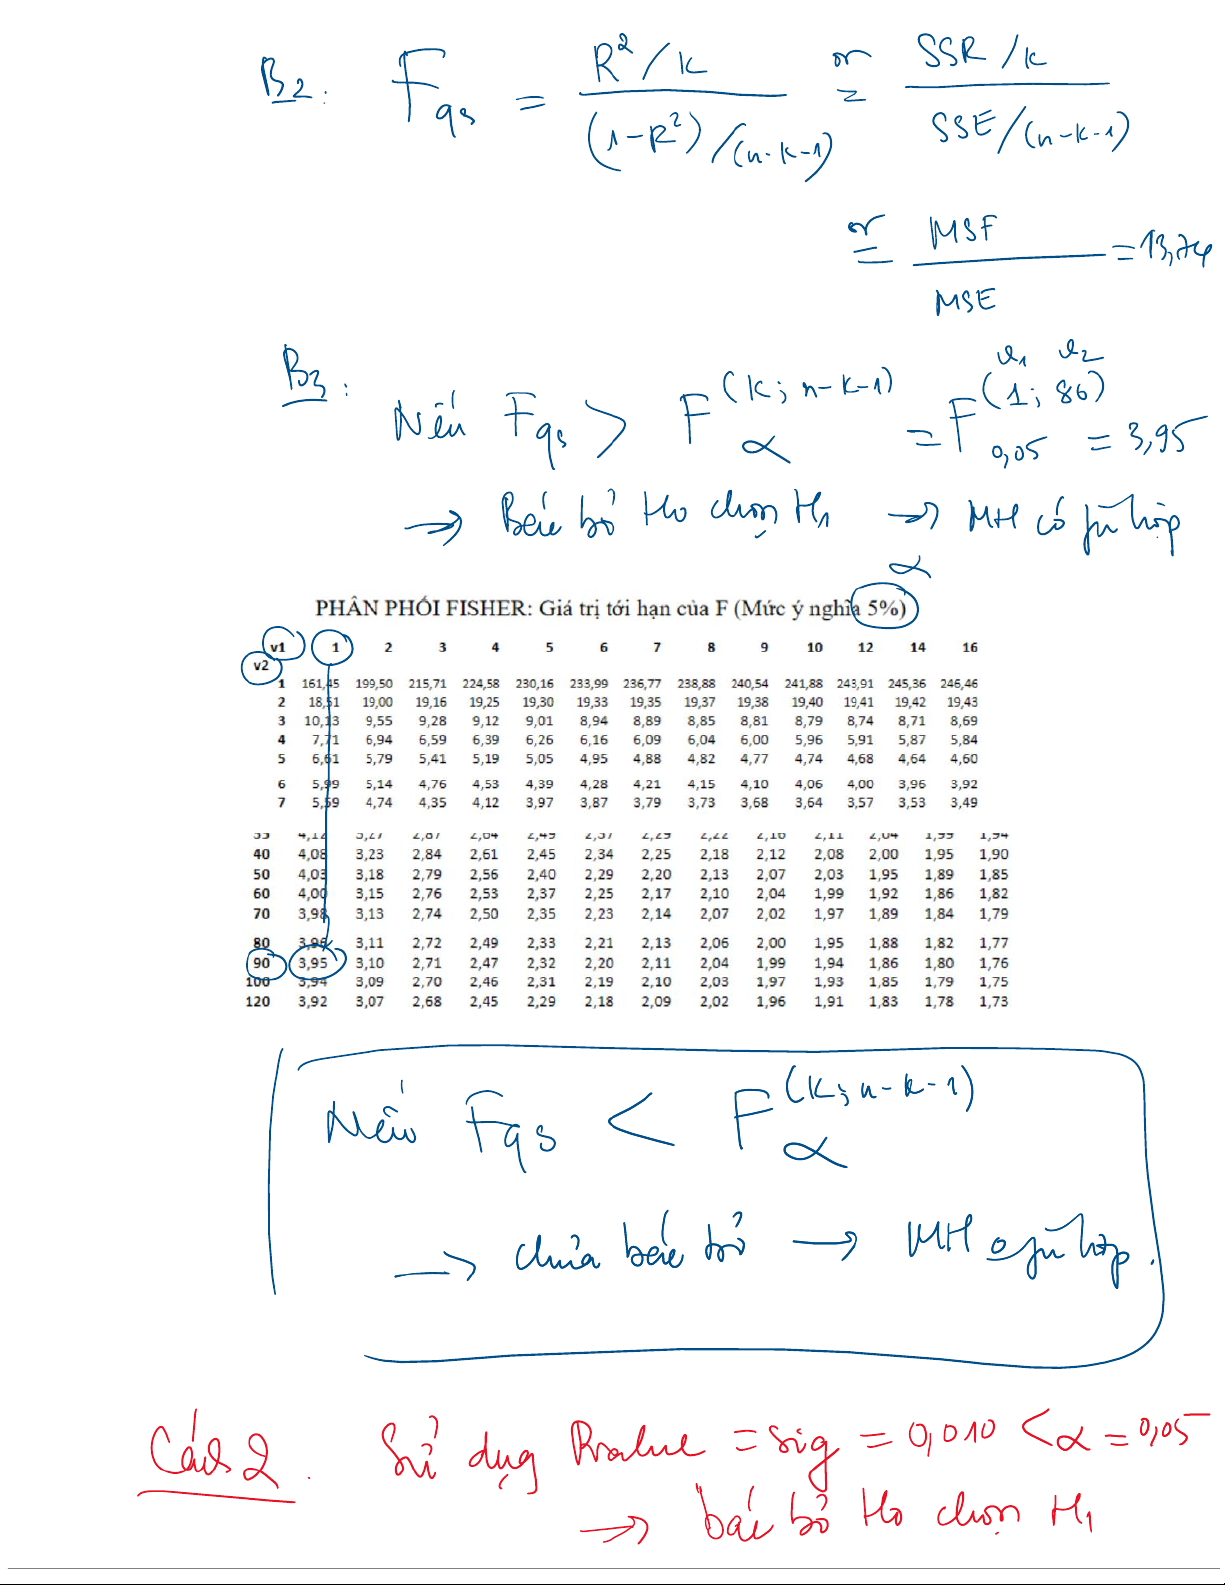 B2: Fqs = R²/k / (1-R²)/(n-k-1) or = SSR/k / SSE/(n-k-1)
or = MSF / MSE = 13,74
B3: Nếu Fqs > F α (k; n-k-1) = F 0,05 (1; 86) = 3,95
v1 v2
→ Bác bỏ Ho chọn H1 → MH có fù hợp
α
PHÂN PHỐI FISHER: Giá trị tới hạn của F (Mức ý nghĩa 5%)
v1 1 2 3 4 5 6 7 8 9 10 12 14 16
v2
1 161,45 199,50 215,71 224,58 230,16 233,99 236,77 238,88 240,54 241,88 243,91 245,36 246,46
2 18,51 19,00 19,16 19,25 19,30 19,33 19,35 19,37 19,38 19,40 19,41 19,42 19,43
3 10,13 9,55 9,28 9,12 9,01 8,94 8,89 8,85 8,81 8,79 8,74 8,71 8,69
4 7,71 6,94 6,59 6,39 6,26 6,16 6,09 6,04 6,00 5,96 5,91 5,87 5,84
5 6,61 5,79 5,41 5,19 5,05 4,95 4,88 4,82 4,77 4,74 4,68 4,64 4,60
6 5,99 5,14 4,76 4,53 4,39 4,28 4,21 4,15 4,10 4,06 4,00 3,96 3,92
7 5,59 4,74 4,35 4,12 3,97 3,87 3,79 3,73 3,68 3,64 3,57 3,53 3,49
35 4,12 3,27 2,87 2,64 2,49 2,37 2,29 2,22 2,16 2,11 2,04 1,99 1,94
40 4,08 3,23 2,84 2,61 2,45 2,34 2,25 2,18 2,12 2,08 2,00 1,95 1,90
50 4,03 3,18 2,79 2,56 2,40 2,29 2,20 2,13 2,07 2,03 1,95 1,89 1,85
60 4,00 3,15 2,76 2,53 2,37 2,25 2,17 2,10 2,04 1,99 1,92 1,86 1,82
70 3,98 3,13 2,74 2,50 2,35 2,23 2,14 2,07 2,02 1,97 1,89 1,84 1,79
80 3,96 3,11 2,72 2,49 2,33 2,21 2,13 2,06 2,00 1,95 1,88 1,82 1,77
90 3,95 3,10 2,71 2,47 2,32 2,20 2,11 2,04 1,99 1,94 1,86 1,80 1,76
100 3,94 3,09 2,70 2,46 2,31 2,19 2,10 2,03 1,97 1,93 1,85 1,79 1,75
120 3,92 3,07 2,68 2,45 2,29 2,18 2,09 2,02 1,96 1,91 1,83 1,78 1,73
Nếu Fqs < F α (k; n-k-1)
→ chưa bác bỏ → MH o fù hợp.
Cách 2. Sử dụng Pvalue = sig = 0,010 < α = 0,05
→ bác bỏ Ho chọn H1